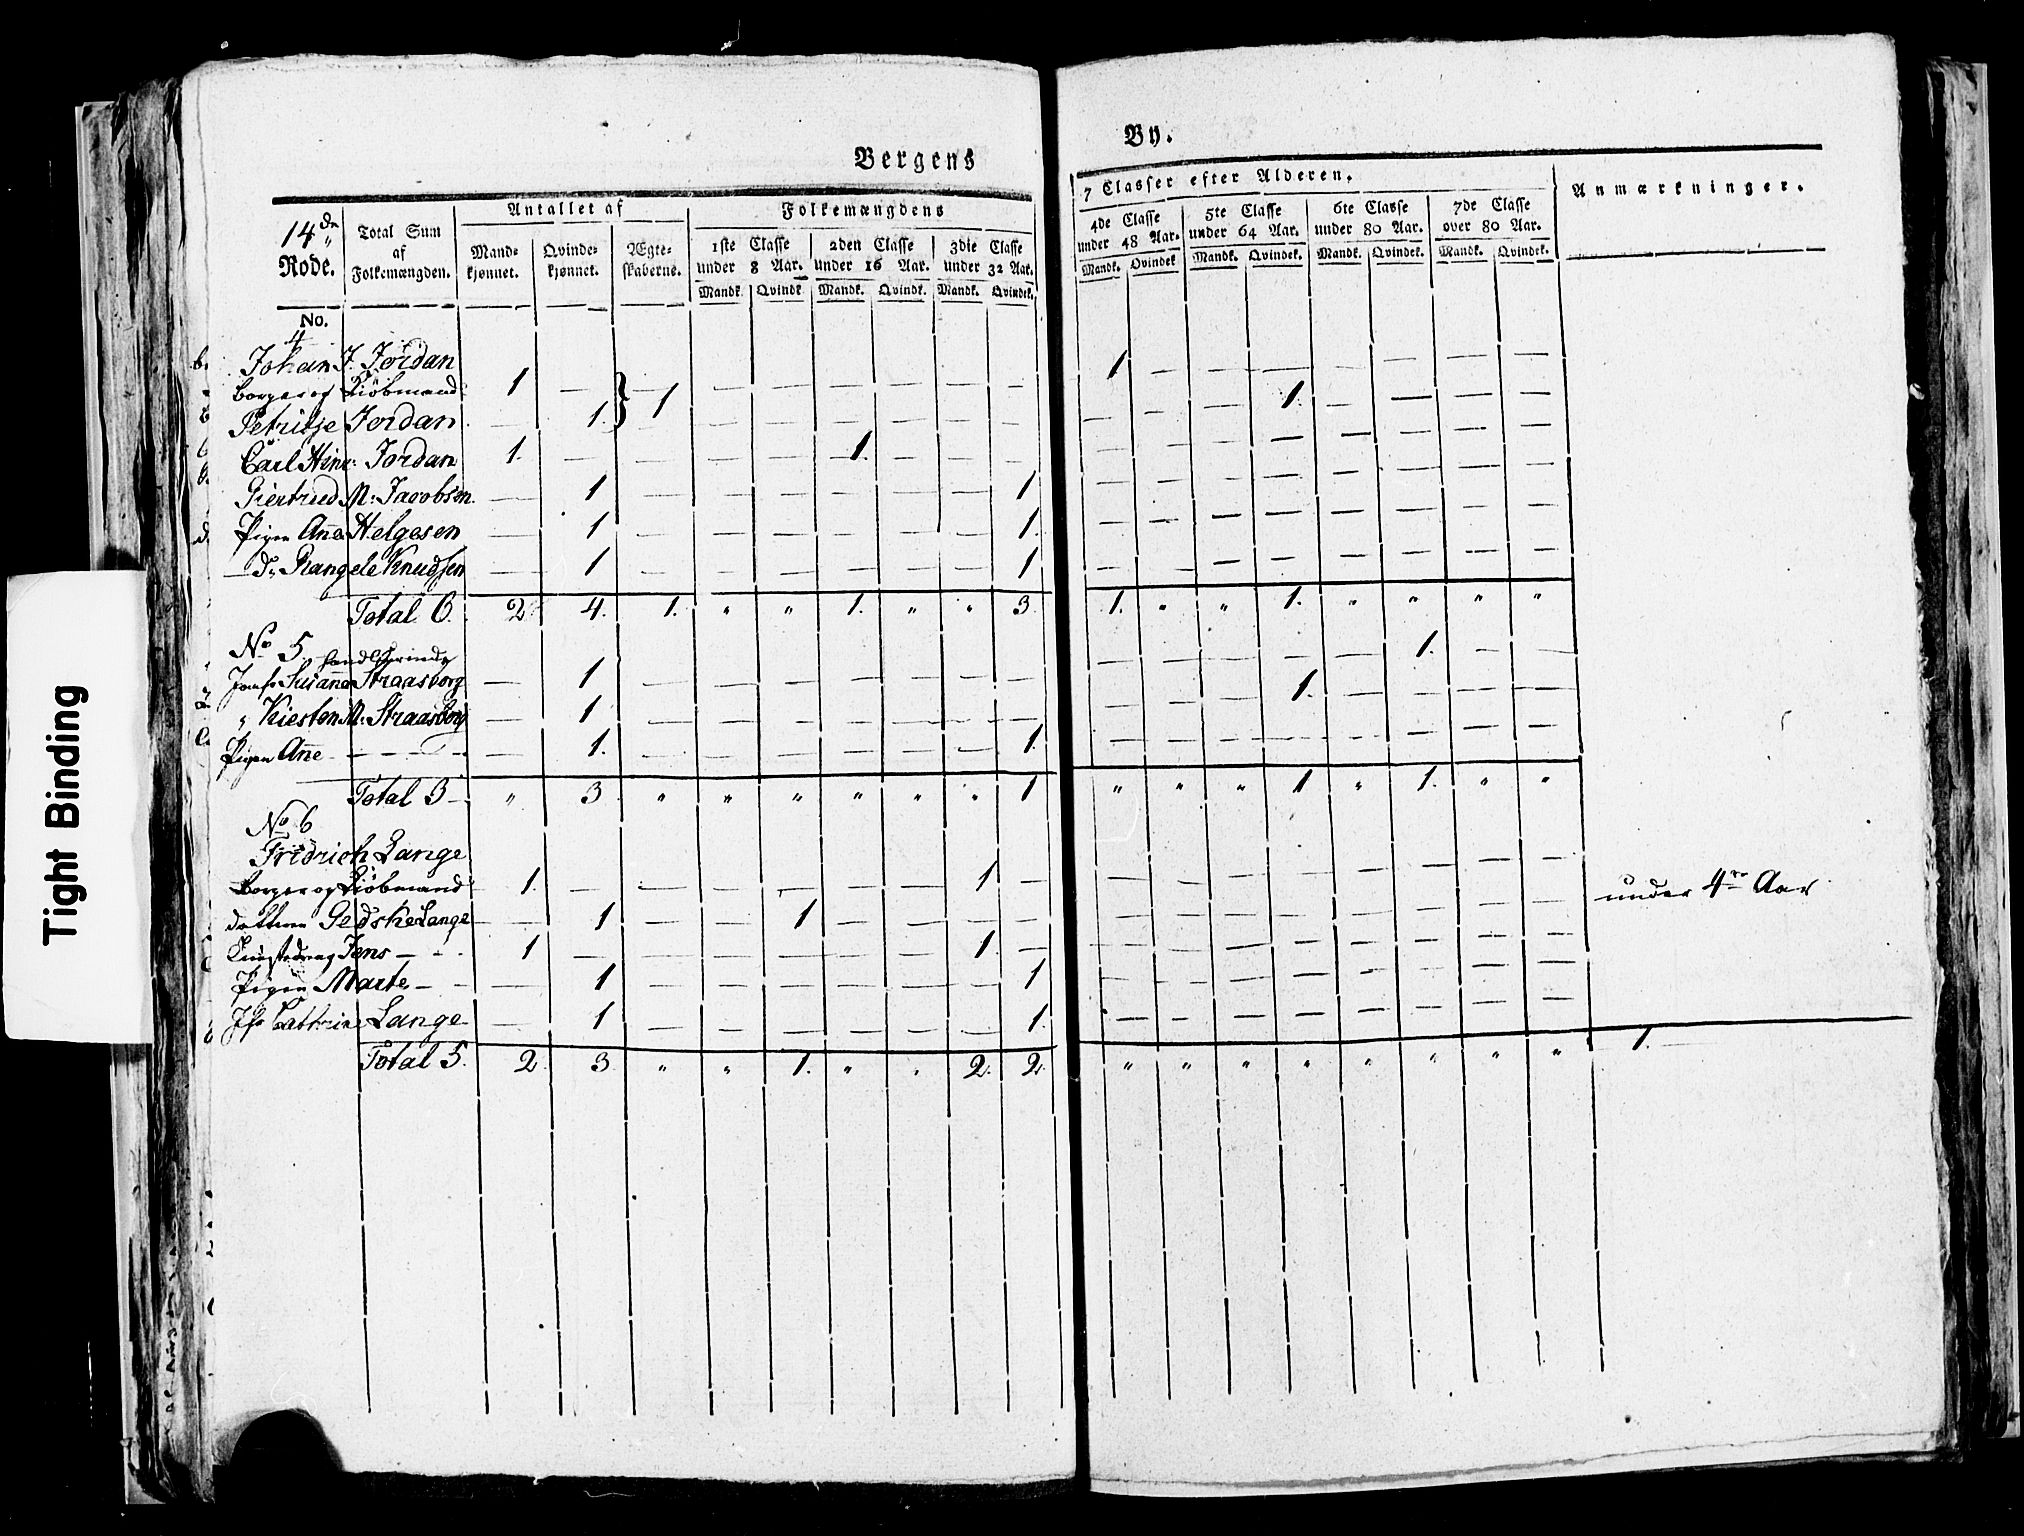 Tight Binding
Bergens By.
14de Rode.
Total Sum af Folkemængden.
Antallet af
Mandkjønnet. Qvindekjønnet. Ægteskaberne.
Folkemængdens 7 Classer efter Alderen.
1ste Classe under 8 Aar. 2den Classe under 16 Aar. 3die Classe under 32 Aar. 4de Classe under 48 Aar. 5te Classe under 64 Aar. 6te Classe under 80 Aar. 7de Classe over 80 Aar.
Mandk. Qvindk. Mandk. Qvindk. Mandk. Qvindek. Mandk. Qvindek. Mandk. Qvindek. Mandk. Qvindek. Mandk. Qvindek.
Anmærkninger.
No.
4
Johan J. Jordan
Borger og Kiöbmand 1 — } 1 — — — — — — 1 — — — — — — —
Petritse Jordan — 1. — — — — — — — — — 1. — — — —
Carl Hinr: Jordan 1. — — — — 1. — — — — — — — — — — —
Giertrud M: Jacobsen — 1 — — — — — — 1 — — — — — — — —
Pigen Añe Helgesen — 1 — — — — — — 1. — — — — — — — —
— do Rangele Knudsen — 1 — — — — — — 1 — — — — — — — —
Total 6. 2 4. 1. " " 1. " " 3. 1. " " 1. " " " "
No 5.
Handlerinde
Jomfr Susanne Straasborg — 1 — — — — — — — — — — — — 1. — —
" Kiersten M: Straasborg — 1. — — — — — — — — — — 1. — — — —
Pigen Añe — — — — 1. — — — — — — 1. — — — — — — — —
Total 3 — " 3 " " " " " " 1 " " " 1 " 1. " "
No 6
Fridrich Lange
Borger og Kiöbmand 1. — — — — — — 1 — — — — — — — — —
datteren Gedske Lange — 1 — — 1 — — — — — — — — — — — — under 4re Aar
Jens — 1 — — — — — — 1. — — — — — — — — —
Pigen Marte — — 1 — — — — — — 1 — — — — — — — —
Jfr Cathrine Lange — 1 — — — — — — 1. — — — — — — — —
Total 5. 2 3 " " 1. " " 2. 2. " " " " " " " " 1.